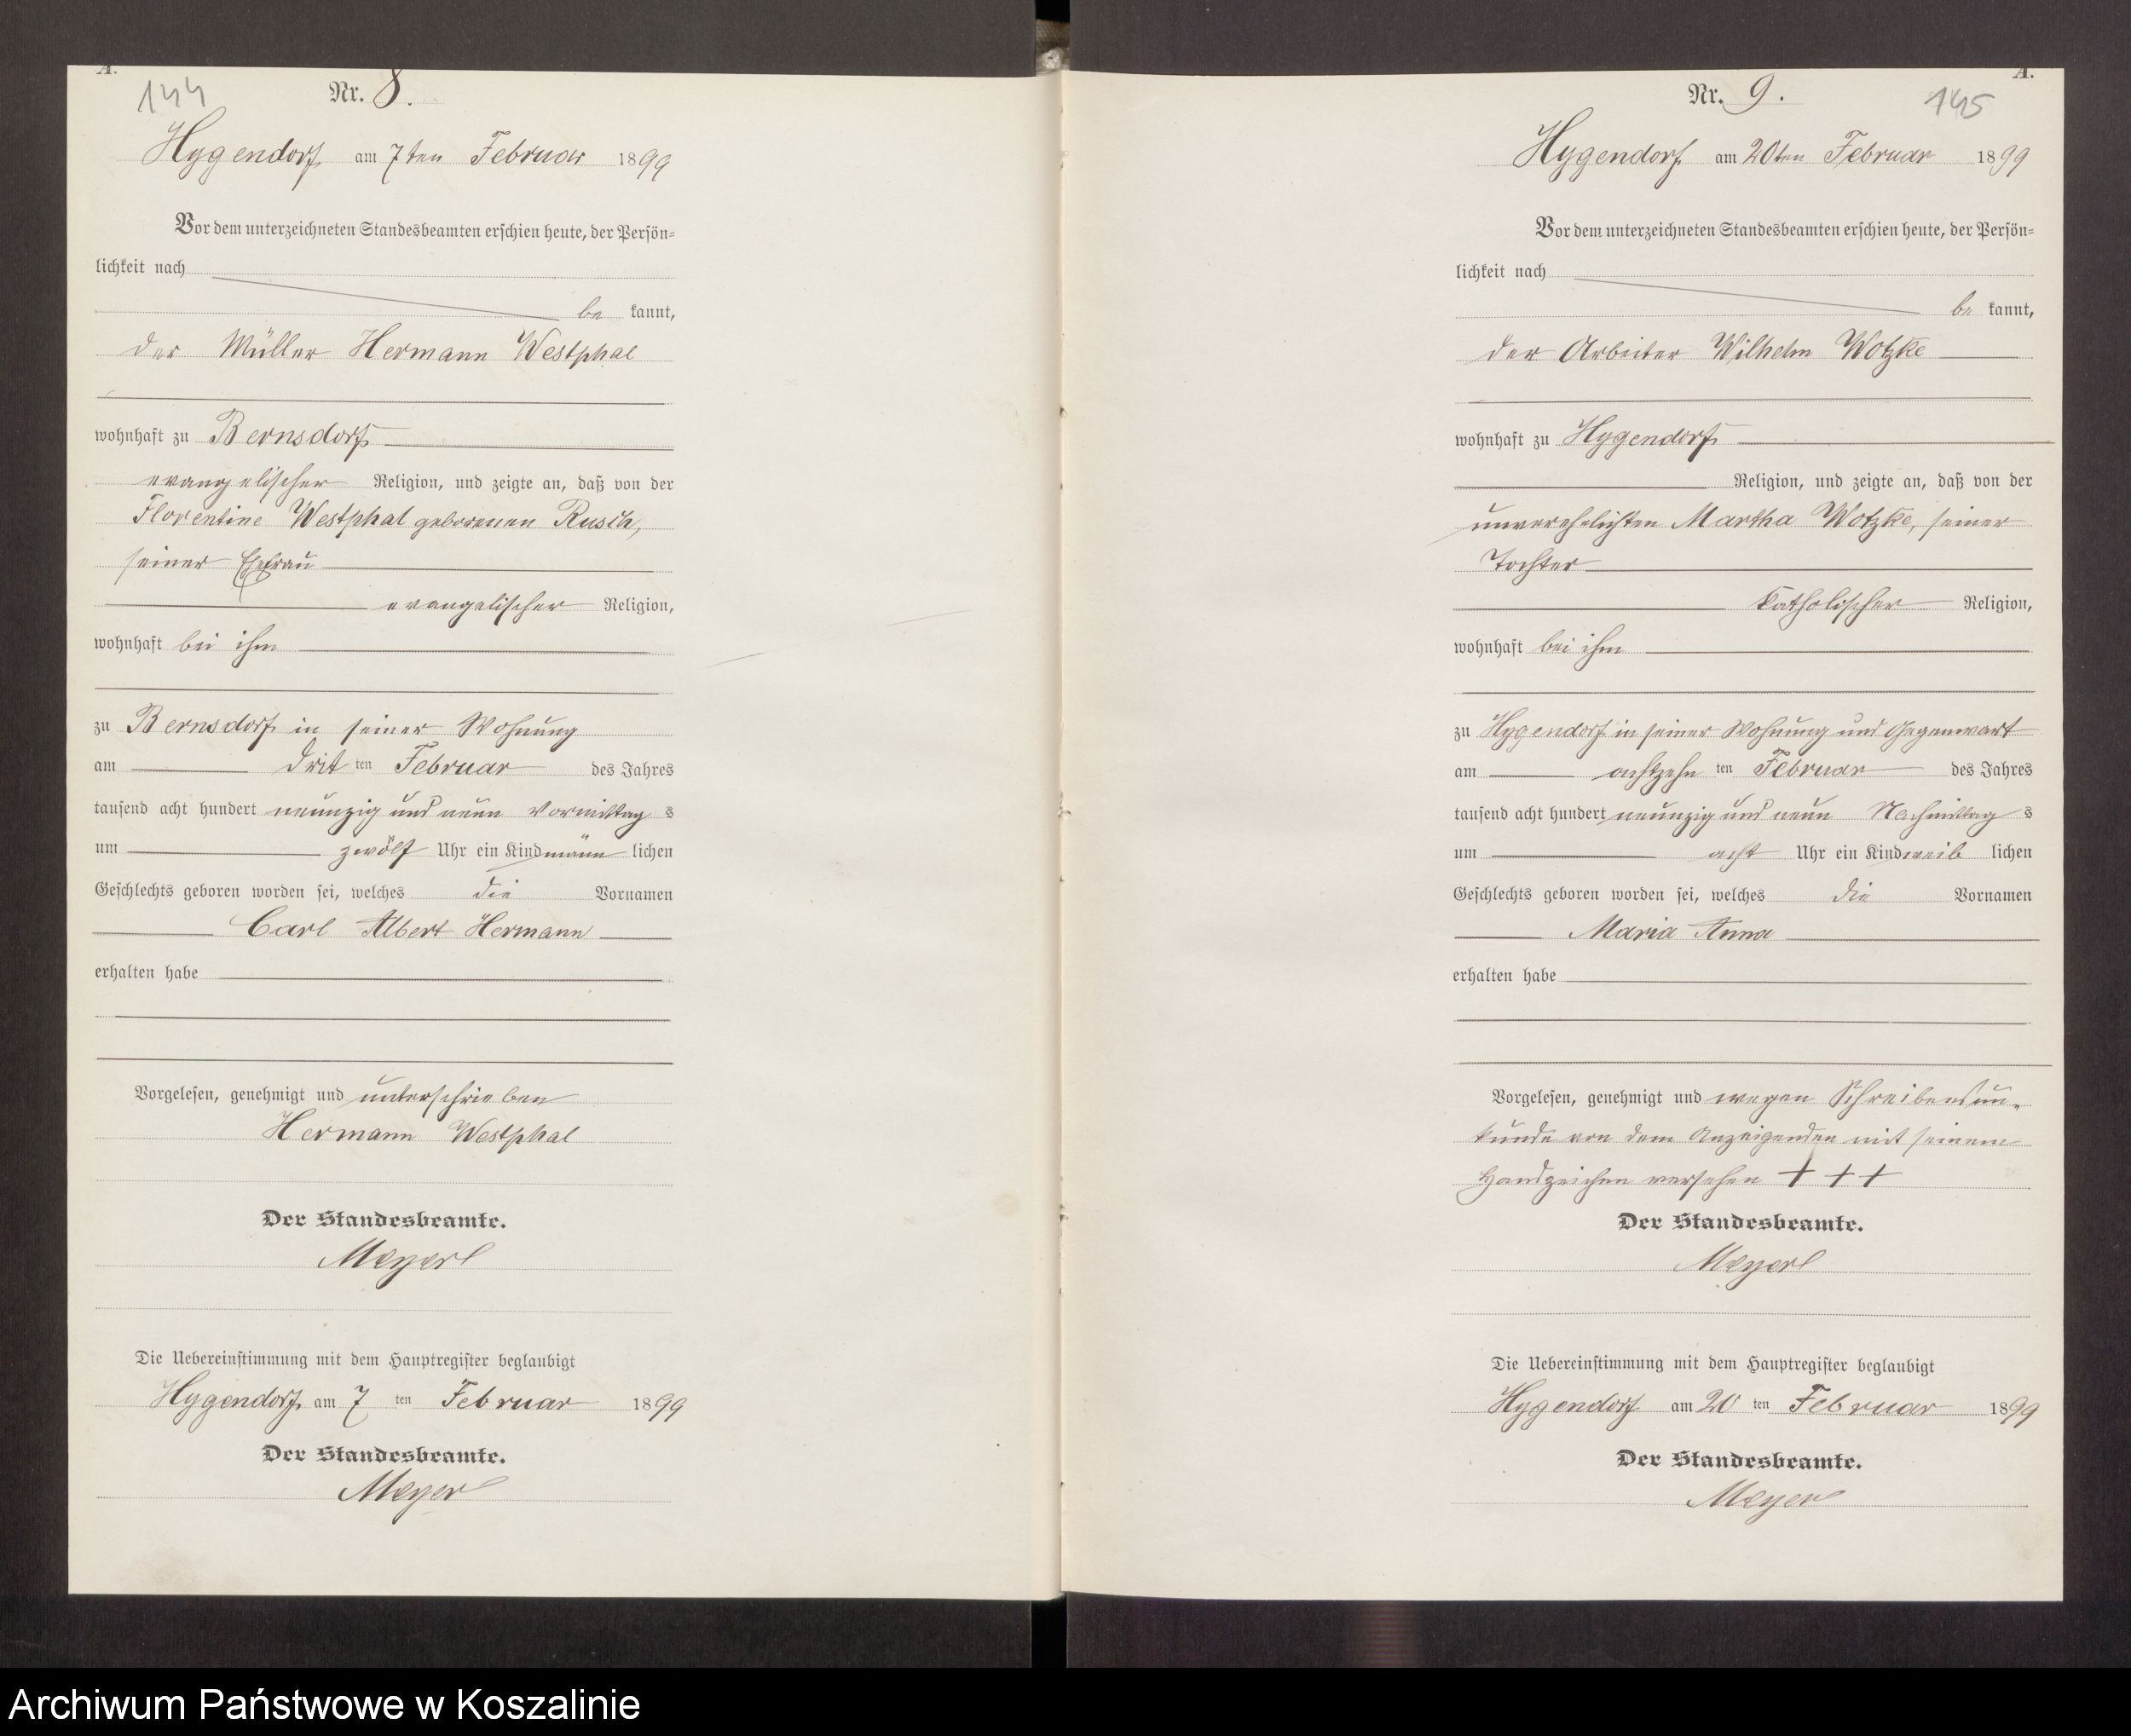 A.
144
Nr. 8.
Hygendorf am 7ten Februar 1899
Vor dem unterzeichneten Standesbeamten erschien heute, der Persön=
lichkeit nach
be kannt,
der Müller Hermann Westphal
wohnhaft zu Bernsdorf
evangelischer Religion, und zeigte an, daß von der
Florentine Westphal geborenen Rusch,
seiner Ehefrau
evangelischer Religion,
wohnhaft bei ihm
zu Bernsdorf in seiner Wohnung
am drit ten Februar des Jahres
tausend acht hundert neunzig und neun Vormittag s
um zwölf Uhr ein Kind männ lichen
Geschlechts geboren worden sei, welches die Vornamen
Carl Albert Hermann
erhalten habe
Vorgelesen, genehmigt und unterschrieben
Hermann Westphal
Der Standesbeamte.
Meyer
Die Uebereinstimmung mit dem Hauptregister beglaubigt
Hygendorf am 7 ten Februar 1899
Der Standesbeamte.
Meyer
A.
145
Nr. 9.
Hygendorf am 20ten Februar 1899
Vor dem unterzeichneten Standesbeamten erschien heute, der Persön=
lichkeit nach
be kannt,
der Arbeiter Wilhelm Wotzke
wohnhaft zu Hygendorf
Religion, und zeigte an, daß von der
unverehelichten Martha Wotzke, seiner
Tochter
katholischer Religion,
wohnhaft bei ihm
zu Hygendorf in seiner Wohnung und Gegenwart
am achtzehn ten Februar des Jahres
tausend acht hundert neunzig und neun Nachmittag s
um acht Uhr ein Kind weib lichen
Geschlechts geboren worden sei, welches die Vornamen
Maria Anna
erhalten habe
Vorgelesen, genehmigt und wegen Schreibensun-
kunde von dem Anzeigenden mit seinem
Handzeichen versehen + + +
Der Standesbeamte.
Meyer
Die Uebereinstimmung mit dem Hauptregister beglaubigt
Hygendorf am 20 ten Februar 1899
Der Standesbeamte.
Meyer
Archiwum Państwowe w Koszalinie